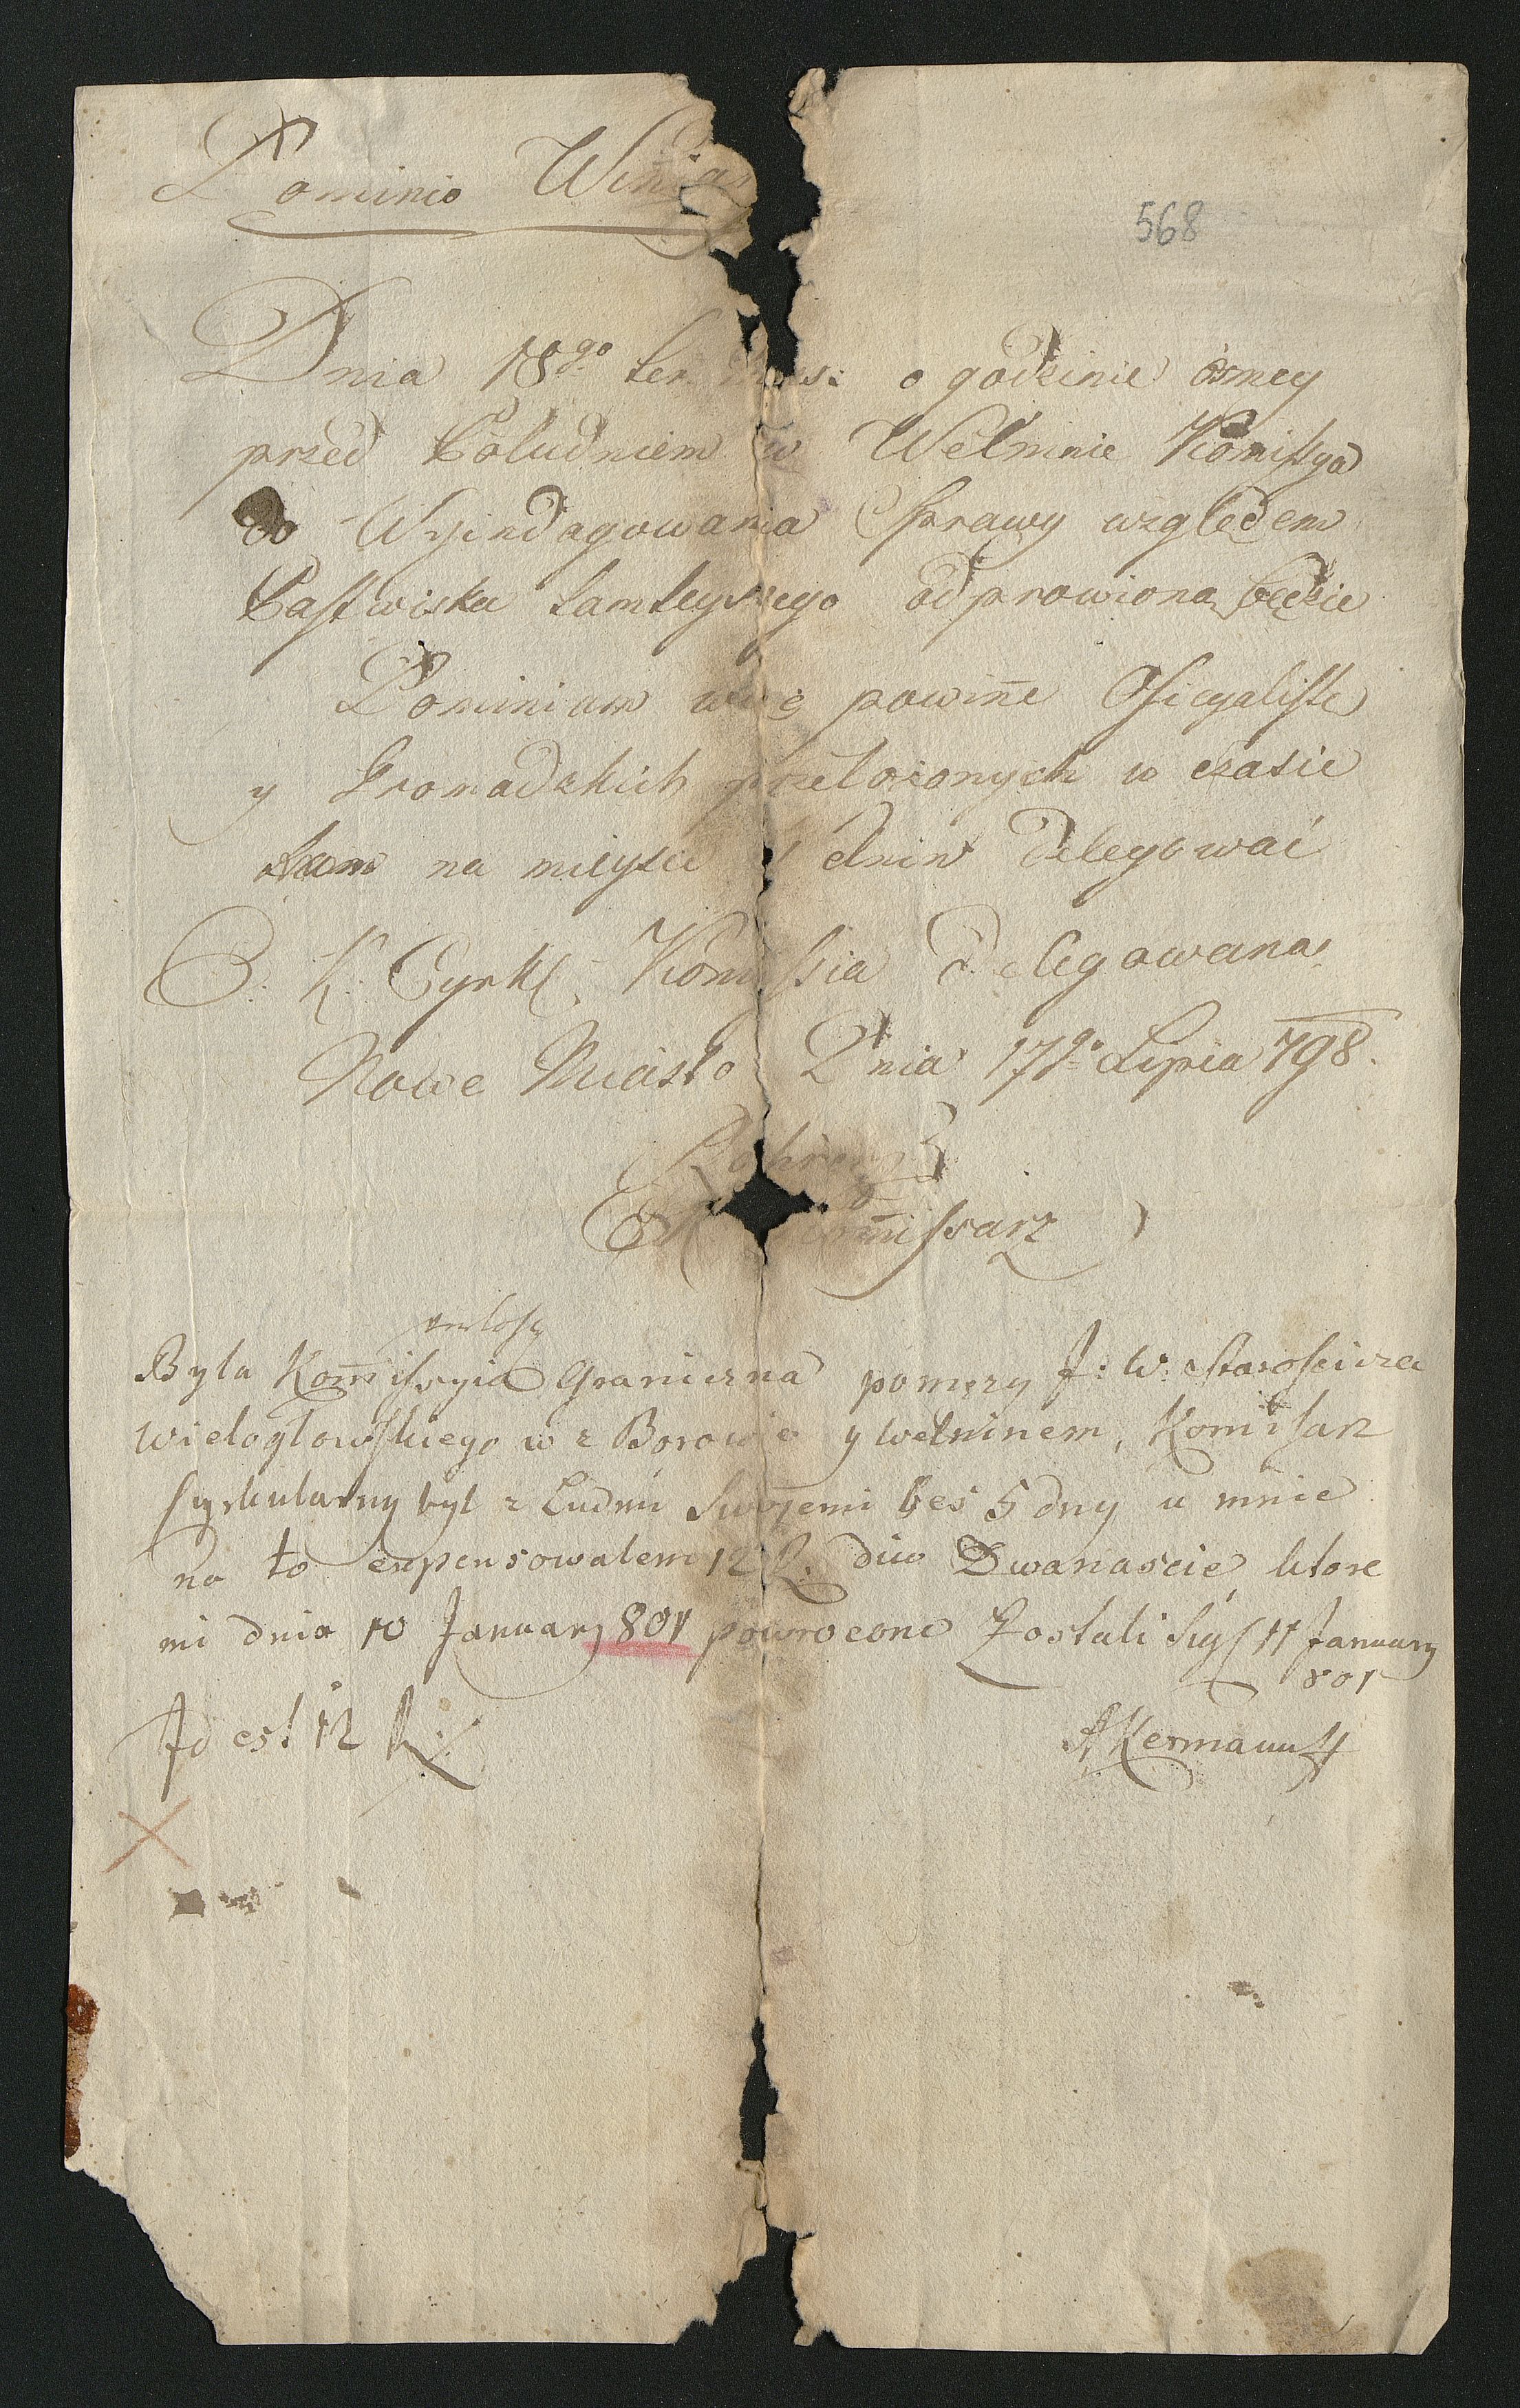 Dominio Winiar
568
Dnia 18go ter. mies: o godzinie ósmey
przed Południem w Wełninie Komissya
do Wyindagowania Sprawy względem
Pastwiska tamteyszego odprawiona będzie
Dominium więc powinne Oficyalistę
y Gromadzkich przełożonych w czasie
tam na mieysce delegować
C: K: Cyrkl. Komissia Delegowana
Nowe Miasto Dnia 17go Lipia 798.
CK Komissarz
Była Kommissyia Graniczna pomęzy J: W: Starościca
Wielogłowskiego w z Borowie y Wełninem, Komisarz
Syrkularny był z Ludmi Swojemi bes 5 dny u mnie
na to expensowałem 12 R. dico Dwanascie, ktore
mi dnia 10 January 801 powrocone Zostali Sig 11 January
801
Id est 12 R:
AKermann